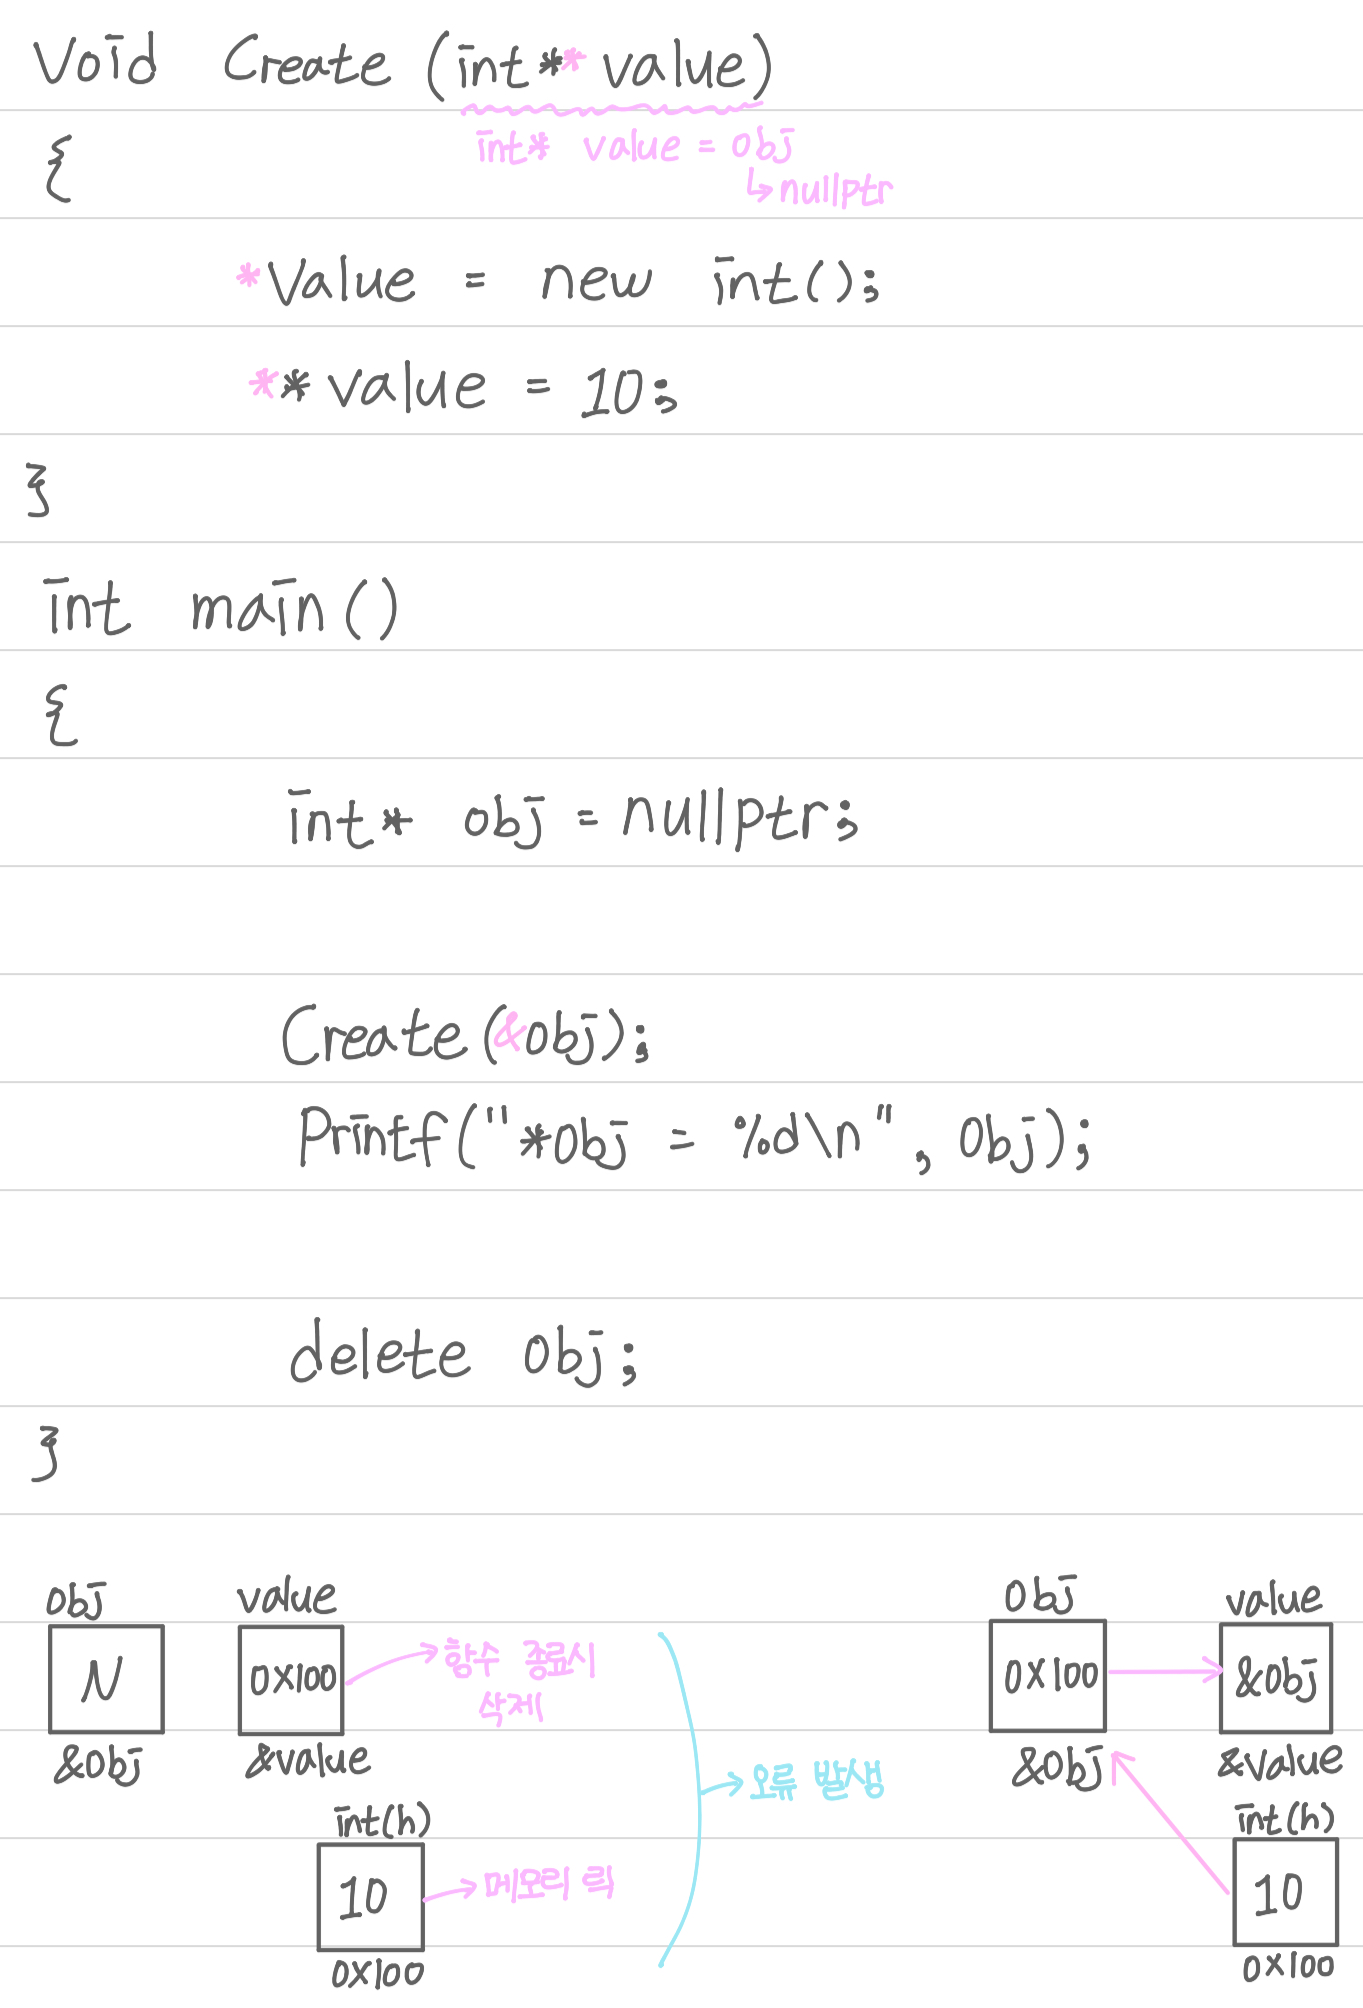 Void Create (int** value)
{
int* value = obj
↳ nullptr
*Value = new int();
**value = 10;
}
int main()
{
int* obj = nullptr;
Create(&obj);
Printf("*obj = %d\n", obj);
delete obj;
}
obj value
N 0X100 → 함수 종료시
삭제
&obj &value
int(h)
10 → 메모리 릭
0X100
→ 오류 발생
obj value
0X100 → &obj
&obj &value
int(h)
10
0X100